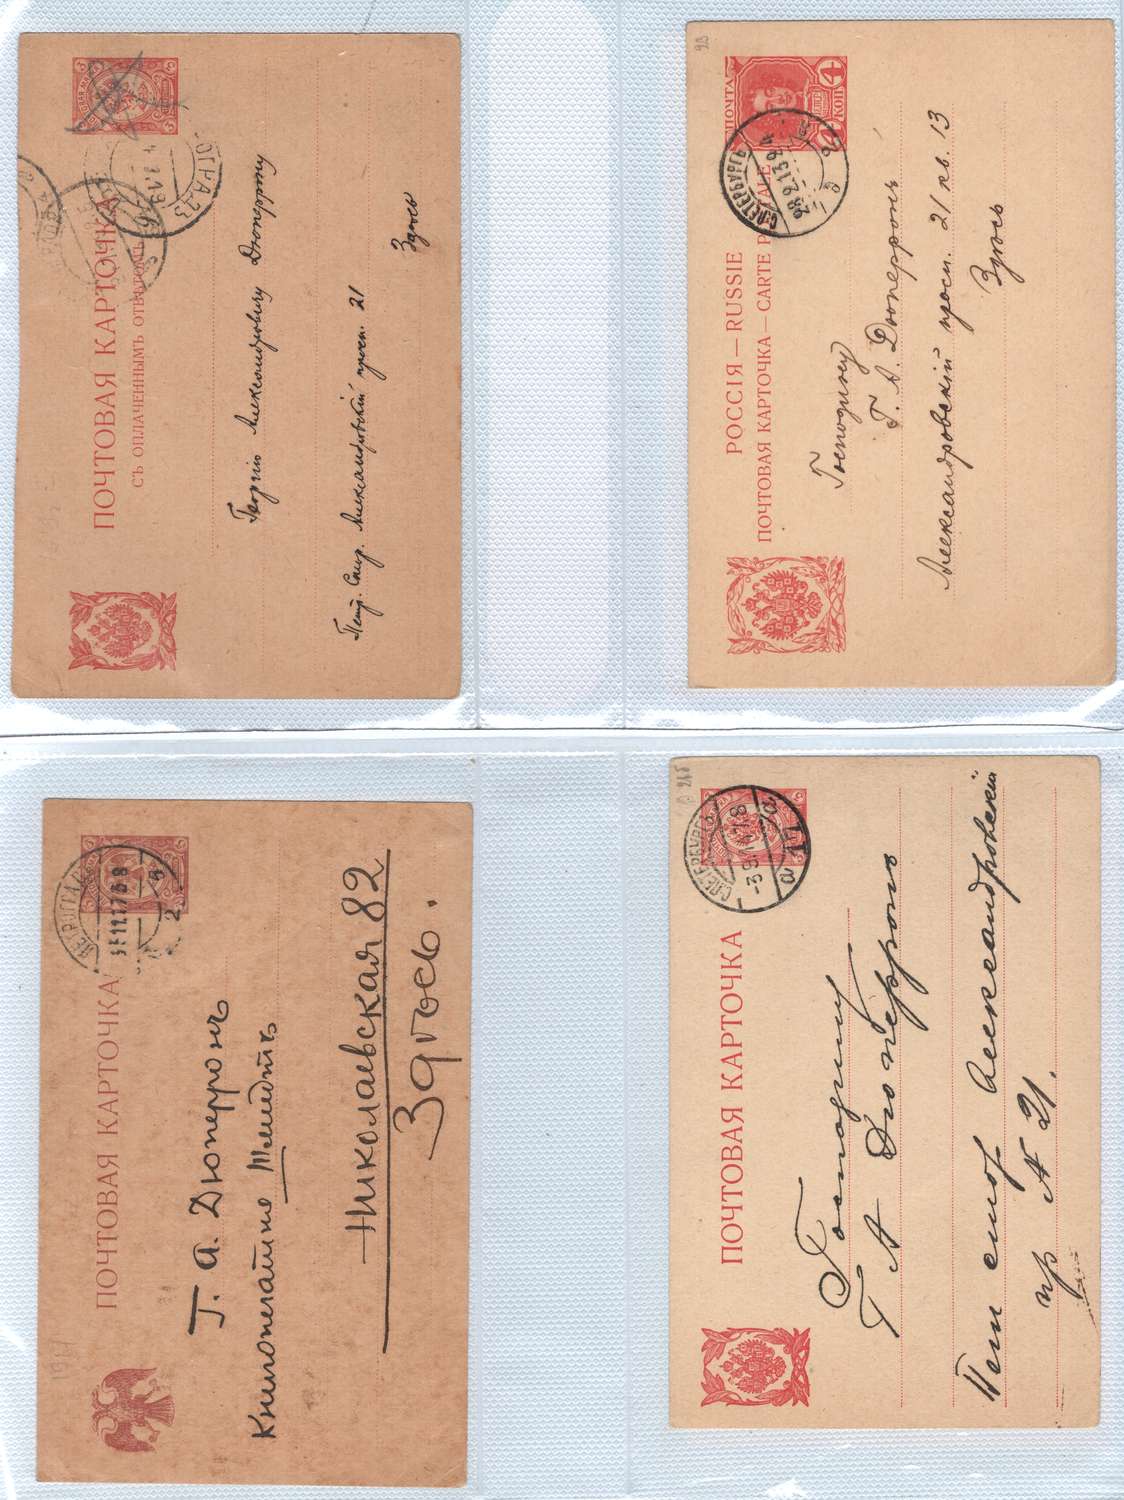 ПОЧТОВАЯ КАРТОЧКА
СЪ ОПЛАЧЕННЫМЪ ОТВѢТОМЪ
Георгію Александровичу Дюперрону
Петр. Стор. Александровскій просп. 21
Здѣсь
28
ПОЧТА
4
КОП
С.ПЕТЕРБУРГЪ
28.2.13
РОССІЯ — RUSSIE
ПОЧТОВАЯ КАРТОЧКА — CARTE POSTALE
Господину
Г. А. Дюперронъ
Александровскій просп. 21 кв. 13
Здѣсь
ПЕТРОГРАДЪ
ПОЧТОВАЯ КАРТОЧКА
Г. А. Дюперронъ
Книгопечатня Шмидтъ
Николаевская 82
Здѣсь.
С.ПЕТЕРБУРГЪ
ПОЧТОВАЯ КАРТОЧКА
Господину
Г А Дюперронъ
Пет стор Александровскій
пр № 21.